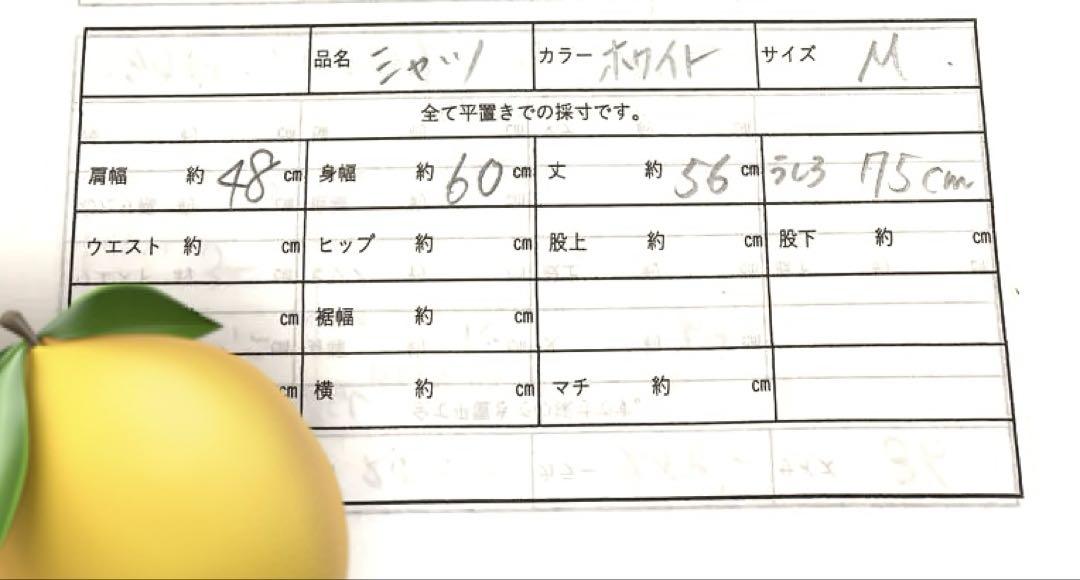 品名 シャツ カラー ホワイト サイズ M
全て平置きでの採寸です。
肩幅 約 48 cm 身幅 約 60 cm 丈 約 56 cm うしろ 75cm
ウエスト 約 cm ヒップ 約 cm 股上 約 cm 股下 約 cm
cm 裾幅 約 cm
cm 横 約 cm マチ 約 cm